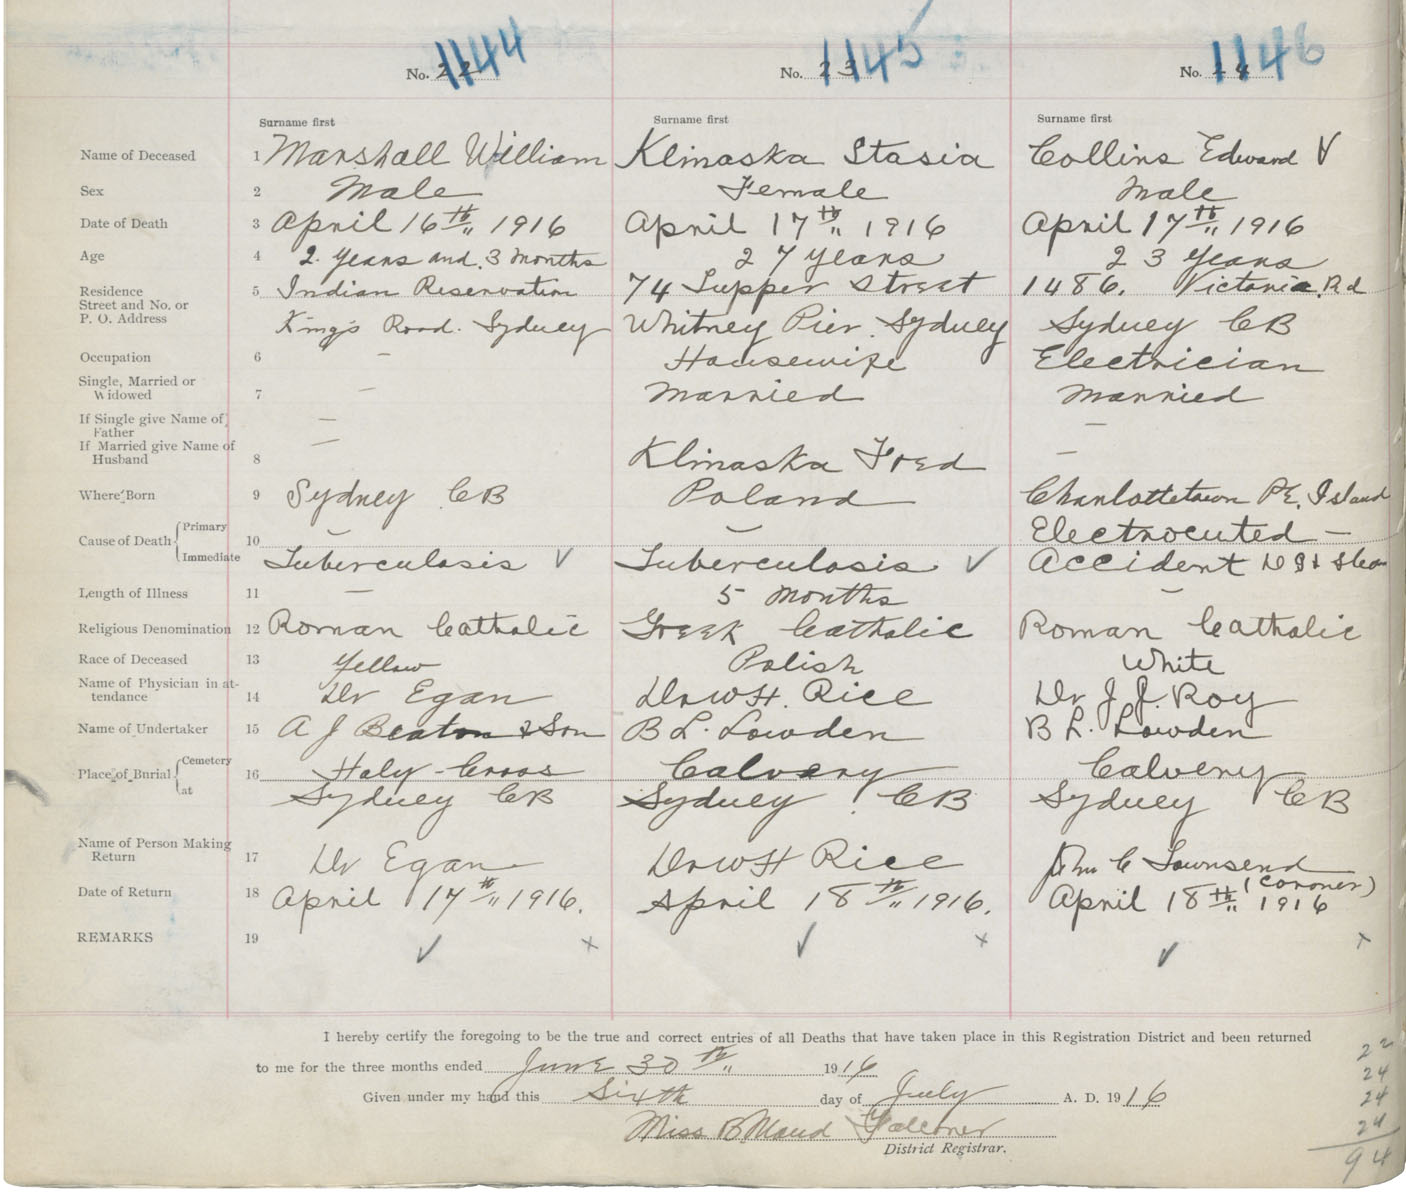 1144 1145 1146
No. 22 No. 23 No. 24
Surname first Surname first Surname first
Name of Deceased 1 Marshall William Klinaska Stasia Collins Edward √
Sex 2 Male Female Male
Date of Death 3 April 16th, 1916 April 17th, 1916 April 17th, 1916
Age 4 2 Years and 3 Months 27 years 23 Years
Residence 5 Indian Reservation 74 Tupper Street 1486. Victoria Rd
Street and No. or
P. O. Address King's Road. Sydney Whitney Pier. Sydney Sydney CB
Occupation 6 — Housewife Electrician
Single, Married or
Widowed 7 — Married Married
If Single give Name of — —
Father
If Married give Name of —
Husband 8 Klinaska Fred —
Where Born 9 Sydney CB Poland Charlottetown P.E. Island
Cause of Death Primary 10 — — Electrocuted —
Immediate Tuberculosis √ Tuberculosis √ Accident
Length of Illness 11 — 5 Months —
Religious Denomination 12 Roman Catholic Greek Catholic Roman Catholic
Race of Deceased 13 Yellow Polish White
Name of Physician in at-
tendance 14 Dr Egan Dr W H. Rice Dr J. J. Roy
Name of Undertaker 15 A J Beaton & Son B L. Lowden B L. Lowden
Place of Burial Cemetery 16 Holy-Cross Calvery Calvery
at Sydney CB Sydney. CB Sydney CB
Name of Person Making
Return 17 Dr Egan Dr W H Rice Townsend
(Coroner)
Date of Return 18 April 17th, 1916. April 18th, 1916. April 18th, 1916
REMARKS 19 √ x √ x √ x
I hereby certify the foregoing to be the true and correct entries of all Deaths that have taken place in this Registration District and been returned
to me for the three months ended June 30th, 1916
Given under my hand this Sixth day of July A. D. 1916
Miss B Maud Falconer
District Registrar.
22
24
24
24
94